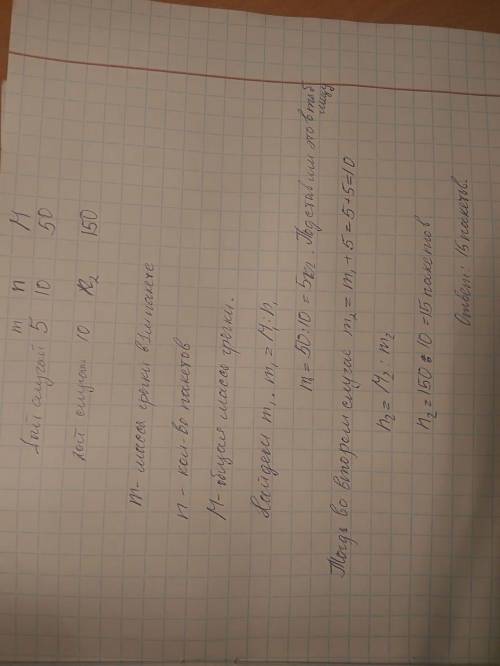 m n M
1ый случай 5 10 50
2ой случай 10 n₂ 150
m - масса гречки в 1 м пакете
n - кол-во пакетов
M - общая масса гречки.
Найдем m₁. m₁ = M : n₁
m = 50 : 10 = 5кг. Подставим это в таб
лицу
Тогда во втором случае m₂ = m₁ + 5 = 5 + 5 = 10
n₂ = M₂ : m₂
n₂ = 150 : 10 = 15 пакетов
Ответ: 15 пакетов.